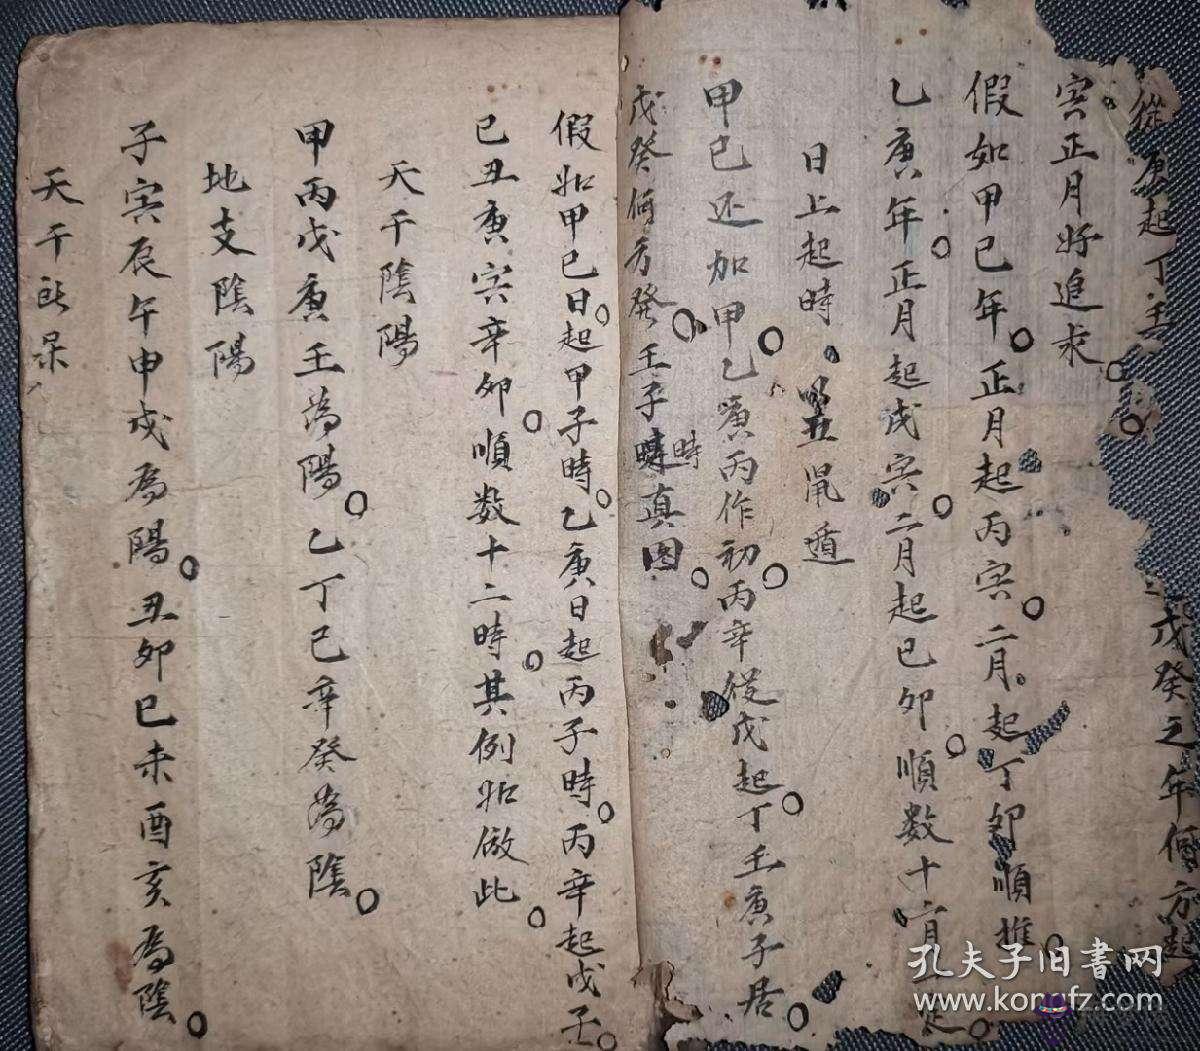 從 起丁壬 戊癸之年何方起
寅正月好追求
假如甲己年正月起丙寅二月起丁卯順推
乙庚年正月起戊寅二月起己卯順数十二月
日上起時 五鼠遁
甲己还加甲乙庚丙作初丙辛從戊起丁壬庚子居
戊癸何方發壬子時真图
時
假如甲己日起甲子時乙庚日起丙子時丙辛起戊子
己丑庚寅辛卯順数十二時其例如倣此
天干陰陽
甲丙戊庚壬為陽乙丁己辛癸為陰
地支陰陽
子寅辰午申戌為陽丑卯巳未酉亥為陰
天干
孔夫子旧書网
www.kongfz.com